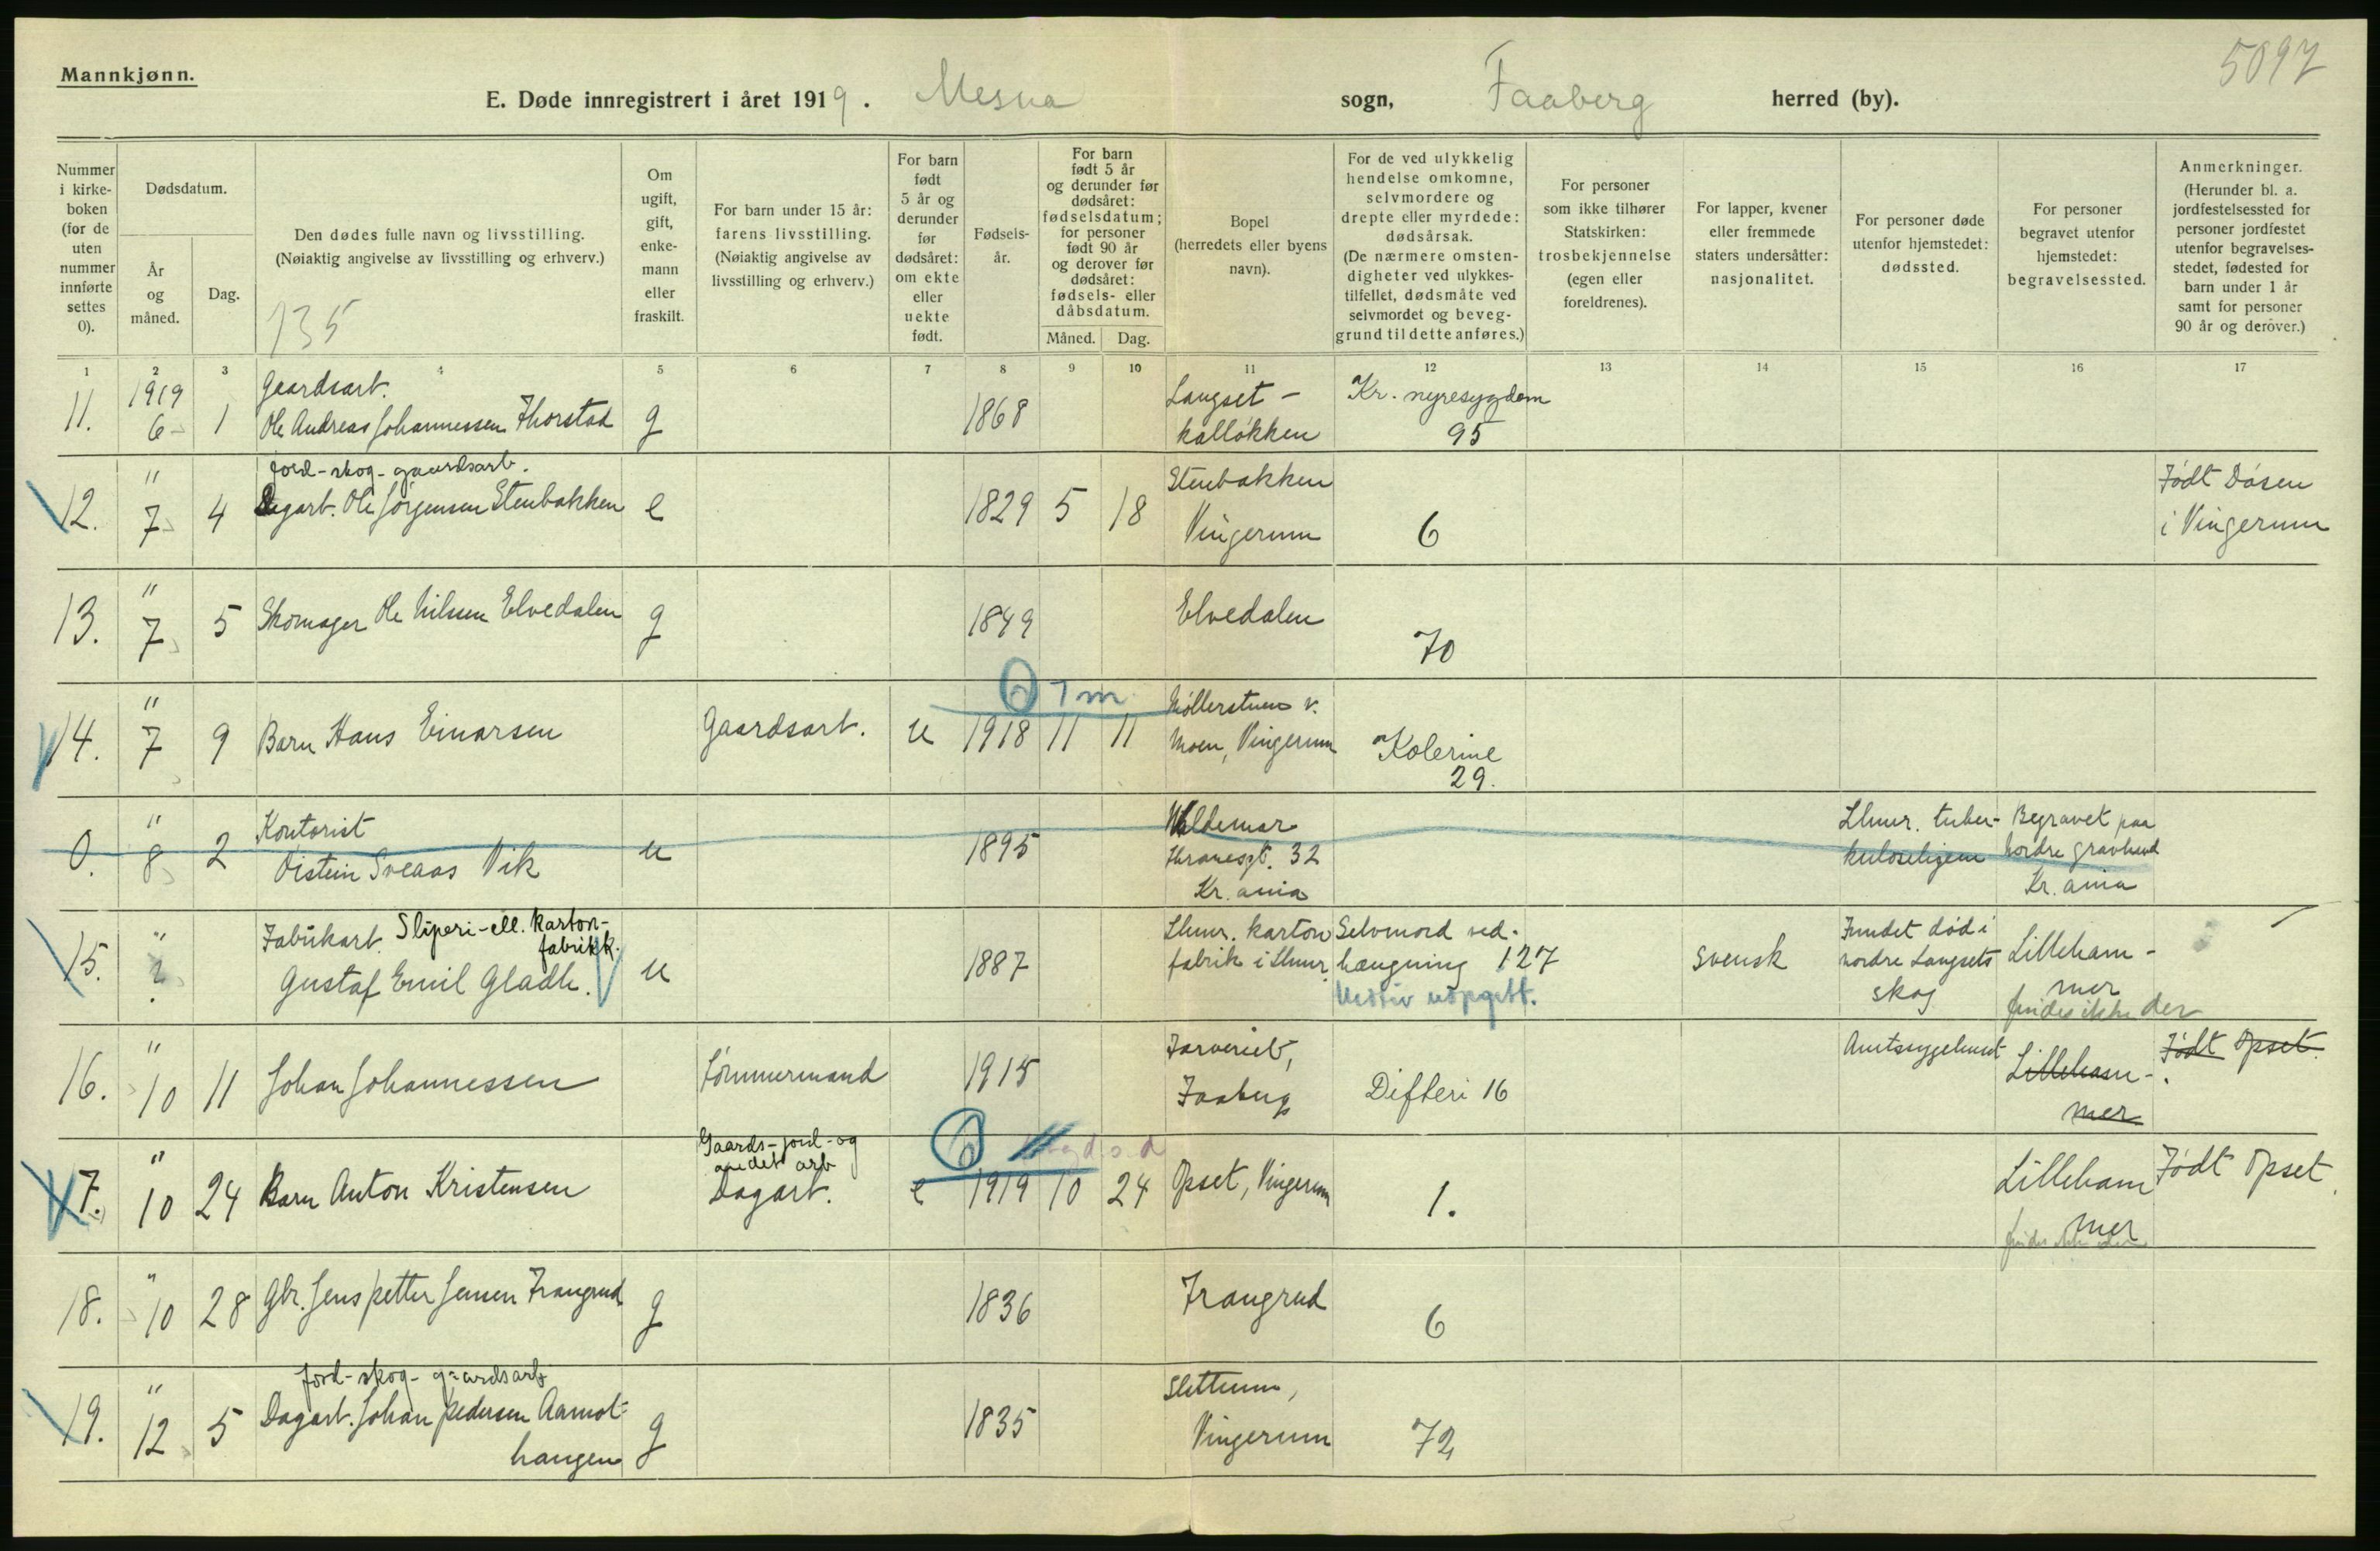 Mannkjønn.
5097
E. Døde innregistrert i året 1919. Mesna sogn, Faaberg herred (by).
Nummer i kirke-boken (for de uten nummer innførte settes 0).
Dødsdatum.
År og måned.
Dag.
Den dødes fulle navn og livsstilling.
(Nøiaktig angivelse av livsstilling og erhverv.)
135
Om ugift, gift, enke-mann eller fraskilt.
For barn under 15 år: farens livsstilling. (Nøiaktig angivelse av livsstilling og erhverv.)
For barn født 5 år og derunder før dødsåret: om ekte eller uekte født.
Fødsels-år.
For barn født 5 år og derunder før dødsåret: fødselsdatum; for personer født 90 år og derover før dødsåret: fødsels- eller dåbsdatum.
Måned. Dag.
Bopel (herredets eller byens navn).
For de ved ulykkelig hendelse omkomne, selvmordere og drepte eller myrdede: dødsårsak. (De nærmere omsten-digheter ved ulykkes-tilfellet, dødsmåte ved selvmordet og beveg-grund til dette anføres.)
For personer som ikke tilhører Statskirken: trosbekjennelse (egen eller foreldrenes).
For lapper, kvener eller fremmede staters undersåtter: nasjonalitet.
For personer døde utenfor hjemstedet: dødssted.
For personer begravet utenfor hjemstedet: begravelsessted.
Anmerkninger. (Herunder bl. a. jordfestelsessted for personer jordfestet utenfor begravelses-stedet, fødested for barn under 1 år samt for personer 90 år og derover.)
1 2 3 4 5 6 7 8 9 10 11 12 13 14 15 16 17
11. 1919 6 1 Gaardsart. Ole Andreas Johannessen Thorstad g 1868 Langset-kalløkken Kr. nyresygdom 95
12. " 7 4 jord-skog-gaardsarb. Dagarb. Ole Jörgensen Stenbakken e 1829 5 18 Stenbakken Vingerum 6 Födt Dåsen i Vingerum
13. " 7 5 Skomager Ole Nilsen Elvedalen g 1849 Elvedalen 70
7 m
14. " 7 9 Barn Hans Einarsen Gaardsarb. u 1918 11 11 Möllerstuen v. Moen, Vingerum Kolerine 29.
0. " 8 2 Kontorist Öistein Sveaas Vik u 1895 Waldemar Thranesgt. 32 Kr.ania Lhmr. tuber-kuloschjem Begravet paa Nordre gravlund Kr.ania
15. " ? Fabrikarb. Sliperi-ell. karton-fabrikk. Gustaf Emil Gladh. u 1887 Lhmr. karton fabrik i Lhmr. Selvmord ved hængning 127 Motiv uopgitt. svensk Fundet död i nordre Langsets skog Lilleham-mer findes ikke der
16. " 10 11 Johan Johannessen Tömmermand 1915 Farveriet, Faaberg Difteri 16 Amtssygehuset Lilleham-mer Födt Opset.
17. " 10 24 Barn Anton Kristensen Gaards-jord-og andet arb Dagarb. e 1919 10 24 Opset, Vingerum 1. Lilleham mer findes ikke der Födt Opset.
18. " 10 28 Gbr. Jens Petter Jensen Frangrud g 1836 Frangrud 6
19. " 12 5 jord-skog-gaardsarb. Dagarb. Johan Pedersen Aamot-haugen g 1835 Slettum, Vingerum 72